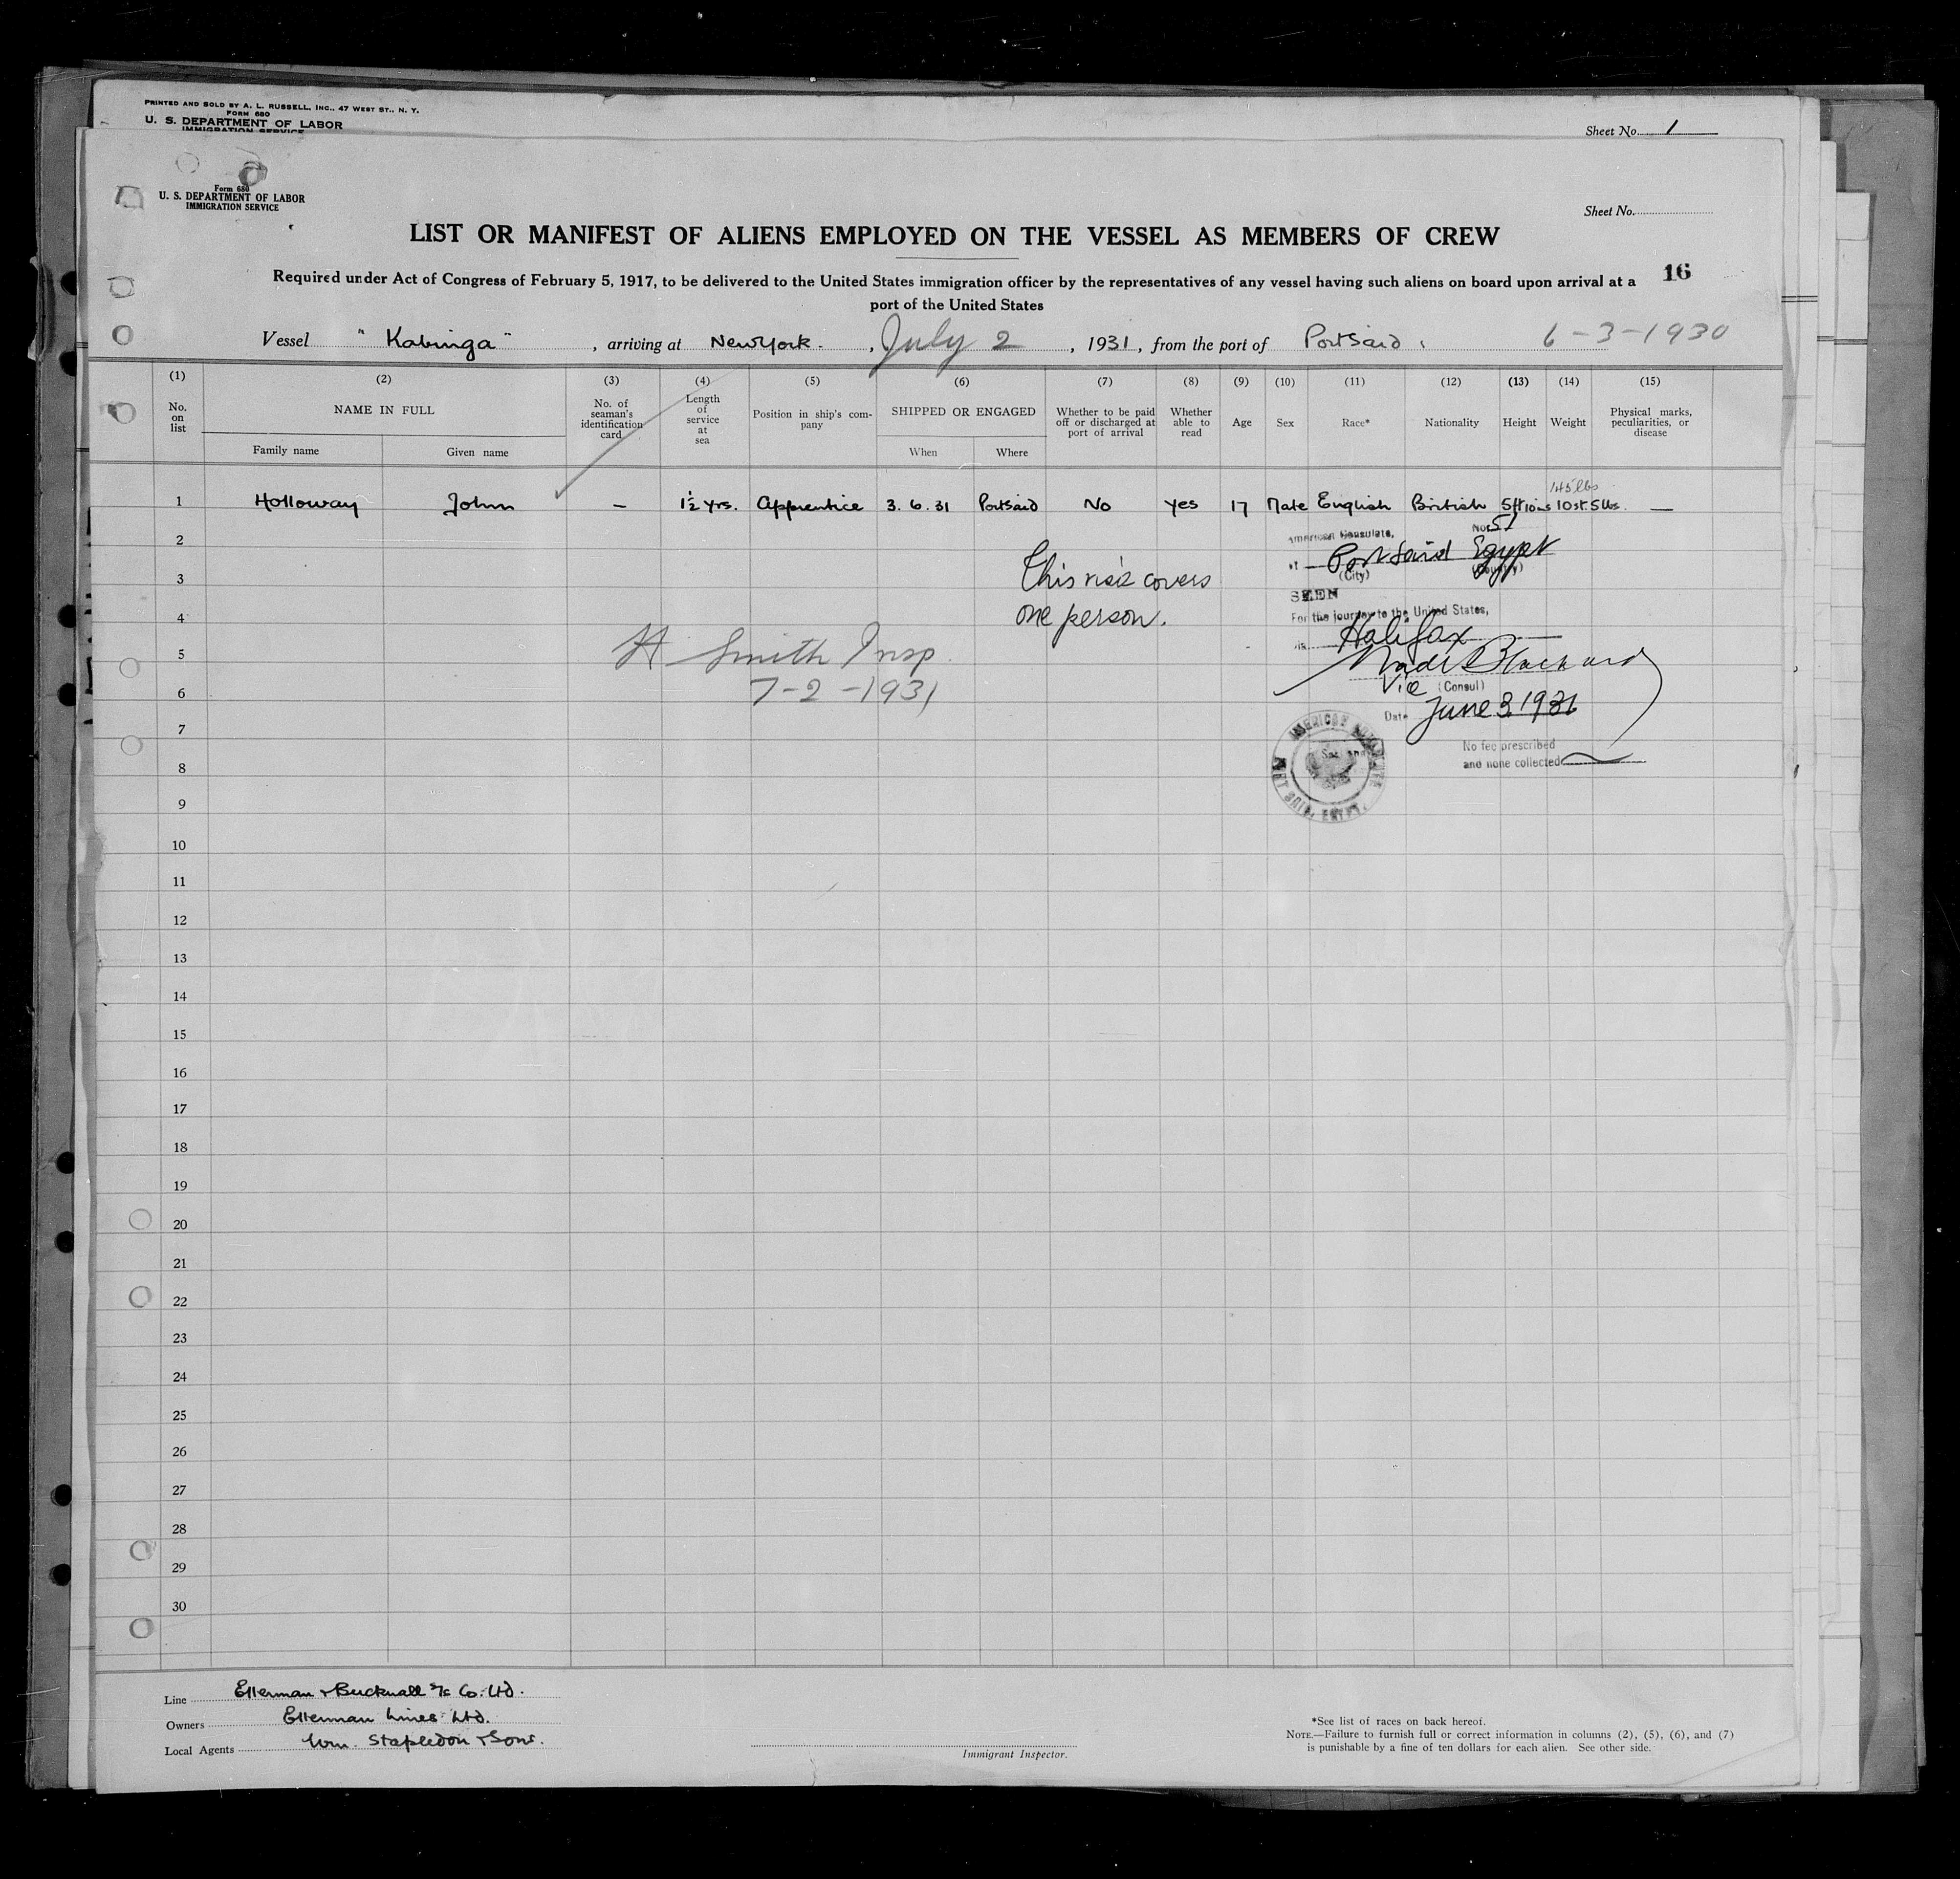 PRINTED AND SOLD BY A. L. RUSSELL, INC., 47 WEST ST., N. Y.
FORM 680
U. S. DEPARTMENT OF LABOR
IMMIGRATION SERVICE
Sheet No. 1
Form 680
U. S. DEPARTMENT OF LABOR
IMMIGRATION SERVICE
Sheet No.
LIST OR MANIFEST OF ALIENS EMPLOYED ON THE VESSEL AS MEMBERS OF CREW
Required under Act of Congress of February 5, 1917, to be delivered to the United States immigration officer by the representatives of any vessel having such aliens on board upon arrival at a
port of the United States
16
Vessel "Kabinga", arriving at New York, July 2, 1931, from the port of Port Said, 6-3-1930
(1) (2) (3) (4) (5) (6) (7) (8) (9) (10) (11) (12) (13) (14) (15)
No. on list
NAME IN FULL
Family name
Given name
No. of seaman's identification card
Length of service at sea
Position in ship's company
SHIPPED OR ENGAGED
When
Where
Whether to be paid off or discharged at port of arrival
Whether able to read
Age
Sex
Race*
Nationality
Height
Weight
Physical marks, peculiarities, or disease
145 lbs
1 Holloway John — 1½ yrs. Apprentice 3.6.31 Port Said No Yes 17 Male English British 5ft10ins 10st.5lbs. —
2
3
4
5
6
7
8
9
10
11
12
13
14
15
16
17
18
19
20
21
22
23
24
25
26
27
28
29
30
This visa covers
one person.
H Smith Insp
7-2-1931
American Consulate, No. 51
at Port Said Egypt
(City) (Country)
SEEN
For the journey to the United States,
via Halifax
Vice (Consul)
Date June 3 1931
No fee prescribed
and none collected
AMERICAN CONSULATE
PORT SAID, EGYPT.
Line Ellerman & Bucknall S/S Co. Ltd.
Owners Ellerman Lines Ltd.
Local Agents Wm. Stapledon & Sons.
Immigrant Inspector.
*See list of races on back hereof.
NOTE.—Failure to furnish full or correct information in columns (2), (5), (6), and (7)
is punishable by a fine of ten dollars for each alien. See other side.